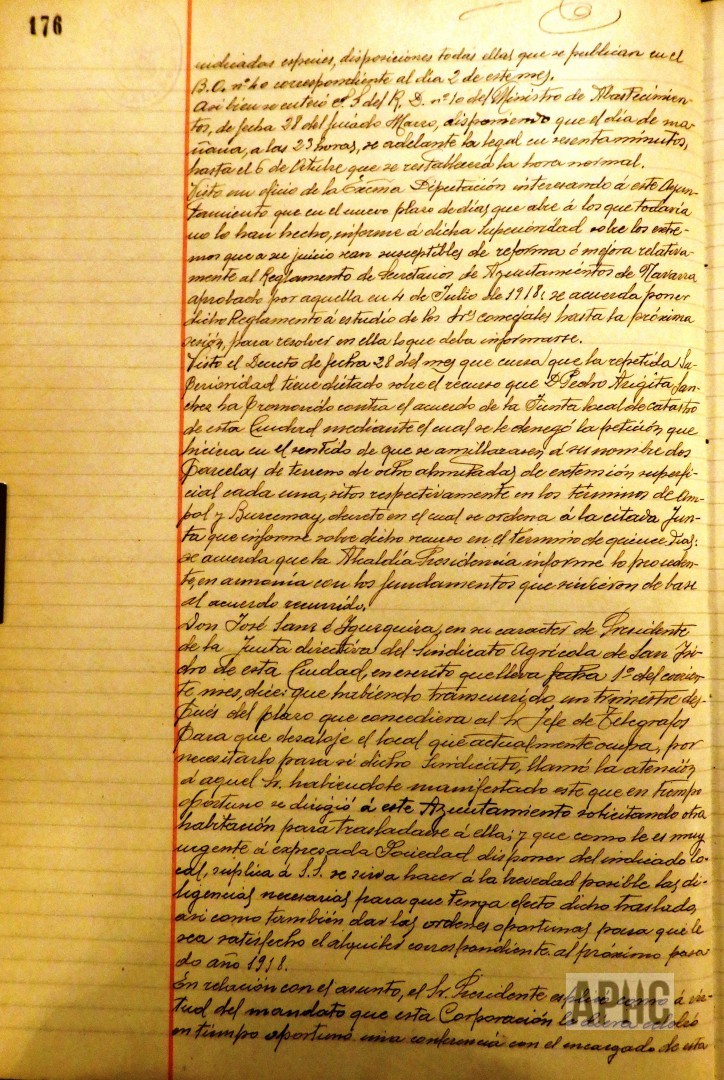 176
indicadas especies, disposiciones todas ellas que se publican en el
B.O. nº 40 correspondiente al día 2 de este mes.
Asi bien se enteró S.S. del R. D. nº 10 del Ministro de Abastecimien-
tos, de fecha 28 del finado Marzo, disponiendo que el día de ma-
ñana, a las 23 horas, se adelante la legal en sesenta minutos,
hasta el 6 de Octubre que se restablecerá la hora normal.
Visto un oficio de la Excma Diputación interesando á este Ayun-
tamiento que en el nuevo plazo de días que abre á los que todavía
no lo han hecho, informe á dicha Superioridad sobre los extre-
mos que a su juicio sean susceptibles de reforma ó mejora relativa-
mente al Reglamento de Secretarios de Ayuntamientos de Navarra
aprobado por aquella en 4 de Julio de 1918; se acuerda poner
dicho Reglamento á estudio de los Srs concejales hasta la próxima
sesión, para resolver en ella lo que deba informarse.
Visto el Decreto de fecha 28 del mes que cursa que la repetida Su-
perioridad tiene dictado sobre el recurso que D. Pedro Arigita San-
chez ha promovido contra el acuerdo de la Junta local de catastro
de esta Ciudad mediante el cual se le denegó la petición, que
hiciera en el sentido de que se amillarasen á su nombre dos
parcelas de terreno de ocho almutadas de extensión superfi-
cial cada una, sitos respectivamente en los términos de
pol y decreto en el cual se ordena á la citada Jun-
ta que informe sobre dicho recurso en el termino de quince días:
se acuerda que la Alcaldía Presidencia informe lo proceden-
te, en armonía con los fundamentos que sirvieron de base
al acuerdo recurrido.
Don José Sanz é Izurquiza, en su caracter de Presidente
de la Junta directiva del Sindicato Agrícola de San Isi-
dro de esta Ciudad, en escrito que lleva fecha 1º del corrien-
te mes, dice: que habiendo transcurrido un trimestre des-
pués del plazo que concediera al Sr Jefe de Telégrafos
para que desaloje el local que actualmente ocupa, por
necesitarlo para sí dicho Sindicato, llamó la atención
á aquel Sr. habiendole manifestado este que en tiempo
oportuno se dirigió á este Ayuntamiento solicitando otra
habitación para trasladarse á ella; y que como le es muy
urgente á expresada Sociedad disponer del indicado lo-
cal, suplica á S.S. se sirva hacer á la brevedad posible las di-
ligencias necesarias para que tenga efecto dicho traslado,
así como también dar las ordenes oportunas para que le
sea satisfecho el alquiler correspondiente al próximo pasa-
do año 1918.
En relación con el asunto, el Sr. Presidente explicó como á vir-
tud del mandato que esta Corporación le diera celebró
en tiempo oportuno una conferencia con el encargado de esta
APHC